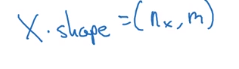 X.shape = (nx, m)